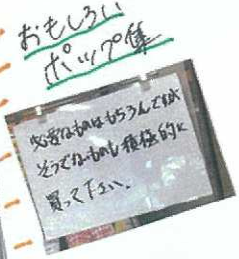 おもしろい
ポップ集
必要なものはもちろんですが
そうでないものも積極的に
買って下さい。